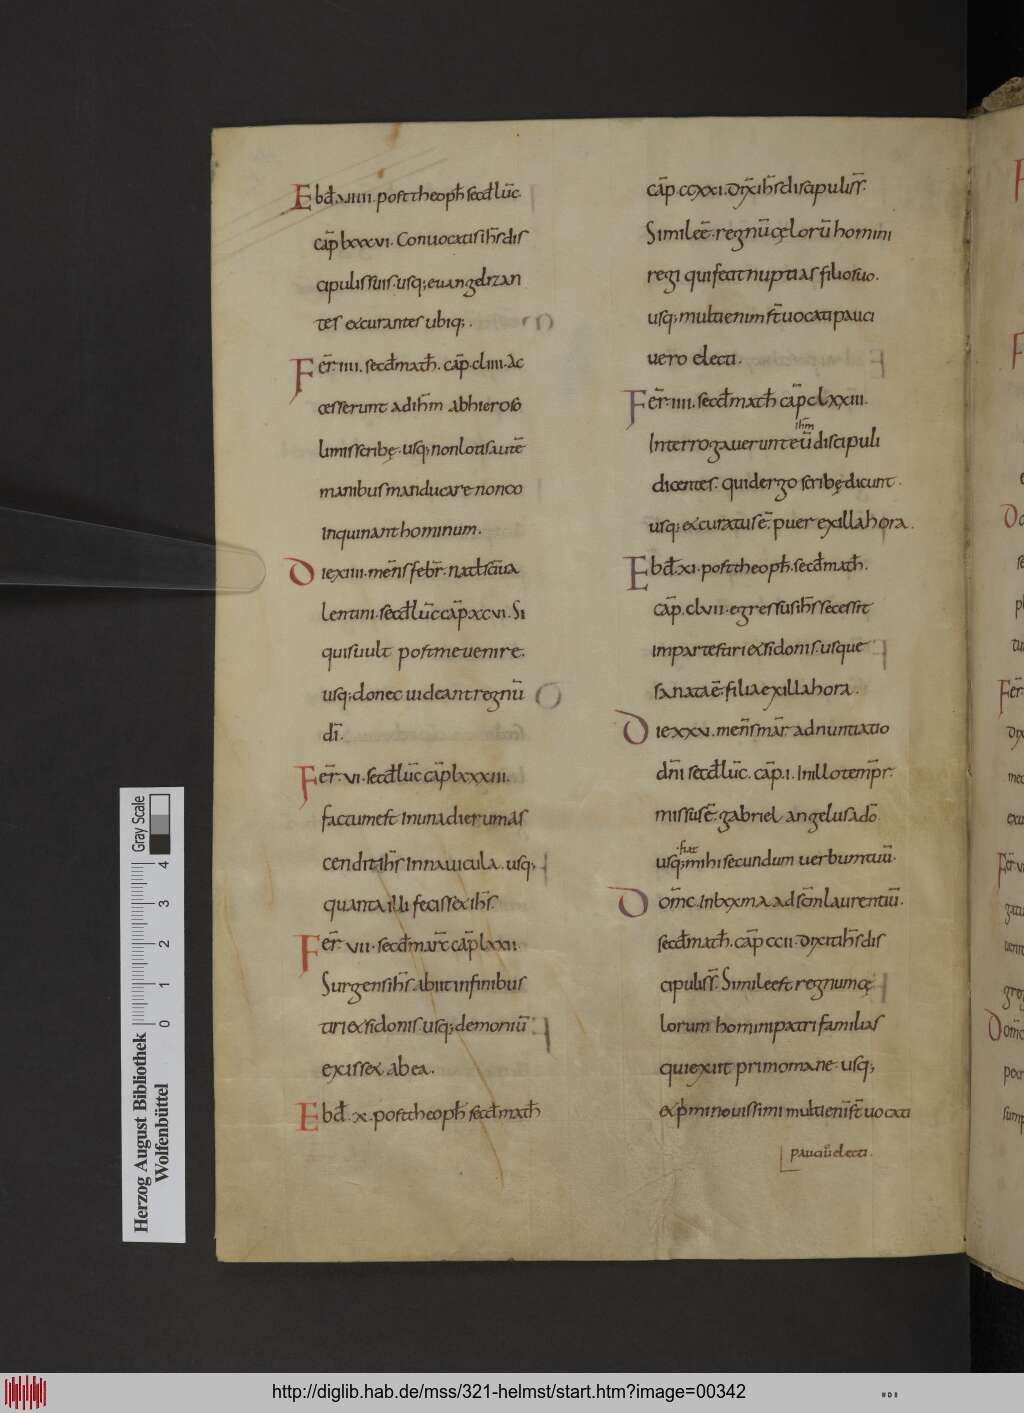 Ebđ·viiii·post theoph̄ secđ luc̄·
cap̄ lxxxvi· Conuocatis ih̄s dis
cipulis suis· usq; euangelizan
tes et curantes ubiq;·
Fer̄·iiii· secđ math̄· cap̄·cliiii· Ac
cesserunt ad ih̄m ab hieroso
limis scribę· usq; non lotis autē
manibus manducare non co
inquinant hominum·
Die xiiii· men̄s febr̄· nat̄ sc̄i ua
lentini· secđ luc̄ cap̄ xcvi· Si
quis uult post me uenire·
usq; donec uideant regnū
dī·
Fer̄·vi· secđ luc̄ cap̄ lxxxiii·
factum est in una dierum as
cendit ih̄s in nauicula· usq;
quanta illi fecisset ih̄s·
Fer̄ vii· secđ marc̄ cap̄ lxxii·
Surgens ih̄s· abiit in finibus
tiri et sidonis· usq; demoniū
exisset ab ea·
Ebđ· x· post theoph̄ secđ math̄
cap̄ ccxxi· dix̄ ih̄s discipulis s̄·
Simile ē· regnū cęlorū homini
regi qui fecit nuptias filio suo·
usq; multi enim st̄ uocati pauci
uero electi·
Fer̄·iiii· secđ math̄ cap̄ clxxiii·
ih̄m
Interrogauerunt eū discipuli
dicentes· quid ergo scribę dicunt·
usq; et curatus ē· puer ex illa hora·
Ebđ·xi· post theoph̄· secđ math̄·
cap̄· clvii· egressus ih̄s secessit
in partes tiri et sidonis· usque
sanata ē· filia ex illa hora·
Die xxv· men̄s mar̄· adnuntiatio
dn̄i secđ luc̄· cap̄·i· In illo temp̄r·
missus ē· gabriel angelus a dō·
·fiat·
usq; mihi secundum uerbum tuū·
Dom̄c· in lxxma ad sc̄m laurentiū·
secđ math̄· cap̄ ccii· dixit ih̄s dis
cipulis s̄· Simile est regnum cę
lorum homini patri familias
qui exiit primo mane· usq;
et p̄mi nouissimi multi enī st̄ uocati
pauci ū electi·
Herzog August Bibliothek
Wolfenbüttel
Gray Scale
0 1 2 3 4
http://diglib.hab.de/mss/321-helmst/start.htm?image=00342